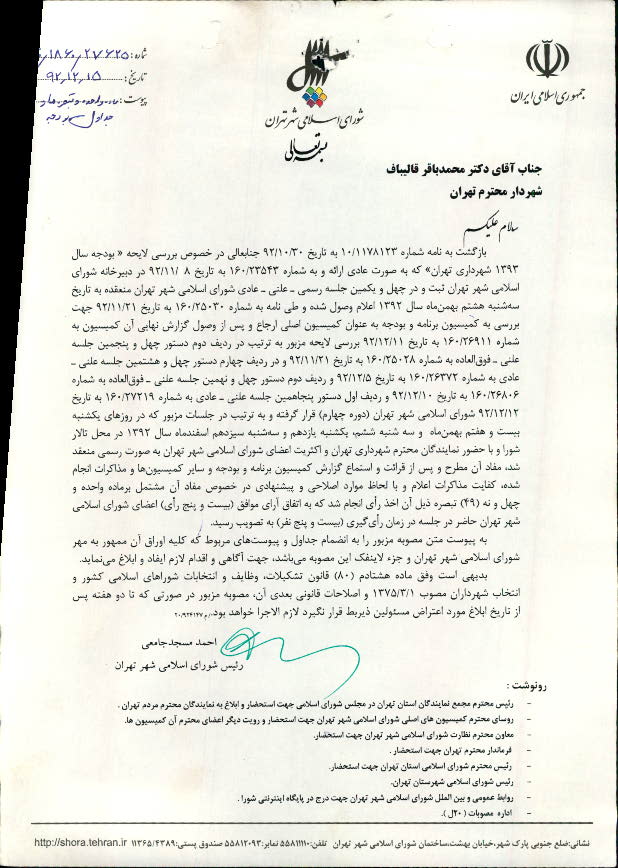 جمهوری اسلامی ایران
شورای اسلامی شهر تهران
بسمه تعالی
شماره: ۱۸۶۰/۲۷۶۲۵
تاریخ: ۹۲،۱۲،۱۵
پیوست:
جناب آقای دکتر محمدباقر قالیباف
شهردار محترم تهران
سلام علیکم
بازگشت به نامه شماره ۱۰/۱۱۷۸۱۲۳ به تاریخ ۹۲/۱۰/۳۰ جنابعالی در خصوص بررسی لایحه « بودجه سال
۱۳۹۳ شهرداری تهران» که به صورت عادی ارائه و به شماره ۱۶۰/۲۳۵۴۳ به تاریخ ۸ /۹۲/۱۱ در دبیرخانه شورای
اسلامی شهر تهران ثبت و در چهل و یکمین جلسه رسمی ـ علنی ـ عادی شورای اسلامی شهر تهران منعقده به تاریخ
سه‌شنبه هشتم بهمن‌ماه سال ۱۳۹۲ اعلام وصول شده و طی نامه به شماره ۱۶۰/۲۵۰۳۰ به تاریخ ۹۲/۱۱/۲۱ جهت
بررسی به کمیسیون برنامه و بودجه به عنوان کمیسیون اصلی ارجاع و پس از وصول گزارش نهایی آن کمیسیون به
شماره ۱۶۰/۲۶۹۱۱ به تاریخ ۹۲/۱۲/۱۱ بررسی لایحه مزبور به ترتیب در ردیف دوم دستور چهل و پنجمین جلسه
علنی ـ فوق‌العاده به شماره ۱۶۰/۲۵۰۲۸ به تاریخ ۹۲/۱۱/۲۱ و در ردیف چهارم دستور چهل و هشتمین جلسه علنی ـ
عادی به شماره ۱۶۰/۲۶۳۷۲ به تاریخ ۹۲/۱۲/۵ و ردیف دوم دستور چهل و نهمین جلسه علنی ـ فوق‌العاده به شماره
۱۶۰/۲۶۸۰۶ به تاریخ ۹۲/۱۲/۱۰ و ردیف اول دستور پنجاهمین جلسه علنی ـ عادی به شماره ۱۶۰/۲۷۲۱۹ به تاریخ
۹۲/۱۲/۱۲ شورای اسلامی شهر تهران (دوره چهارم) قرار گرفته و به ترتیب در جلسات مزبور که در روزهای یکشنبه
بیست و هفتم بهمن‌ماه و سه شنبه ششم، یکشنبه یازدهم و سه‌شنبه سیزدهم اسفندماه سال ۱۳۹۲ در محل تالار
شورا و با حضور نمایندگان محترم شهرداری تهران و اکثریت اعضای شورای اسلامی شهر تهران به صورت رسمی منعقد
شد، مفاد آن مطرح و پس از قرائت و استماع گزارش کمیسیون برنامه و بودجه و سایر کمیسیون‌ها و مذاکرات انجام
شده، کفایت مذاکرات اعلام و با لحاظ موارد اصلاحی و پیشنهادی در خصوص مفاد آن مشتمل برماده واحده و
چهل و نه (۴۹) تبصره ذیل آن اخذ رأی انجام شد که به اتفاق آرای موافق (بیست و پنج رأی) اعضای شورای اسلامی
شهر تهران حاضر در جلسه در زمان رأی‌گیری (بیست و پنج نفر) به تصویب رسید.
به پیوست متن مصوبه مزبور را به انضمام جداول و پیوست‌های مربوط که کلیه اوراق آن ممهور به مهر
شورای اسلامی شهر تهران و جزء لاینفک این مصوبه می‌باشد، جهت آگاهی و اقدام لازم ایفاد و ابلاغ می‌نماید.
بدیهی است وفق ماده هشتادم (۸۰) قانون تشکیلات، وظایف و انتخابات شوراهای اسلامی کشور و
انتخاب شهرداران مصوب ۱۳۷۵/۳/۱ و اصلاحات قانونی بعدی آن، مصوبه مزبور در صورتی که تا دو هفته پس
از تاریخ ابلاغ مورد اعتراض مسئولین ذیربط قرار نگیرد لازم الاجرا خواهد بود.
احمد مسجدجامعی
رئیس شورای اسلامی شهر تهران
رونوشت :
- رئیس محترم مجمع نمایندگان استان تهران در مجلس شورای اسلامی جهت استحضار و ابلاغ به نمایندگان محترم مردم تهران .
- روسای محترم کمیسیون های اصلی شورای اسلامی شهر تهران جهت استحضار و رویت دیگر اعضای محترم آن کمیسیون ها.
- معاون محترم نظارت شورای اسلامی شهر تهران جهت استحضار.
- فرماندار محترم تهران جهت استحضار .
- رئیس محترم شورای اسلامی استان تهران جهت استحضار.
- رئیس شورای اسلامی شهرستان تهران.
- روابط عمومی و بین الملل شورای اسلامی شهر تهران جهت درج در پایگاه اینترنتی شورا .
- اداره مصوبات (۲۰ل ).
نشانی:ضلع جنوبی پارک شهر،خیابان بهشت،ساختمان شورای اسلامی شهر تهران تلفن:۵۵۸۱۱۱۱۰ نمابر:۵۵۸۱۲۰۹۳ صندوق پستی:۱۱۳۶۵/۴۳۸۹ http://shora.tehran.ir